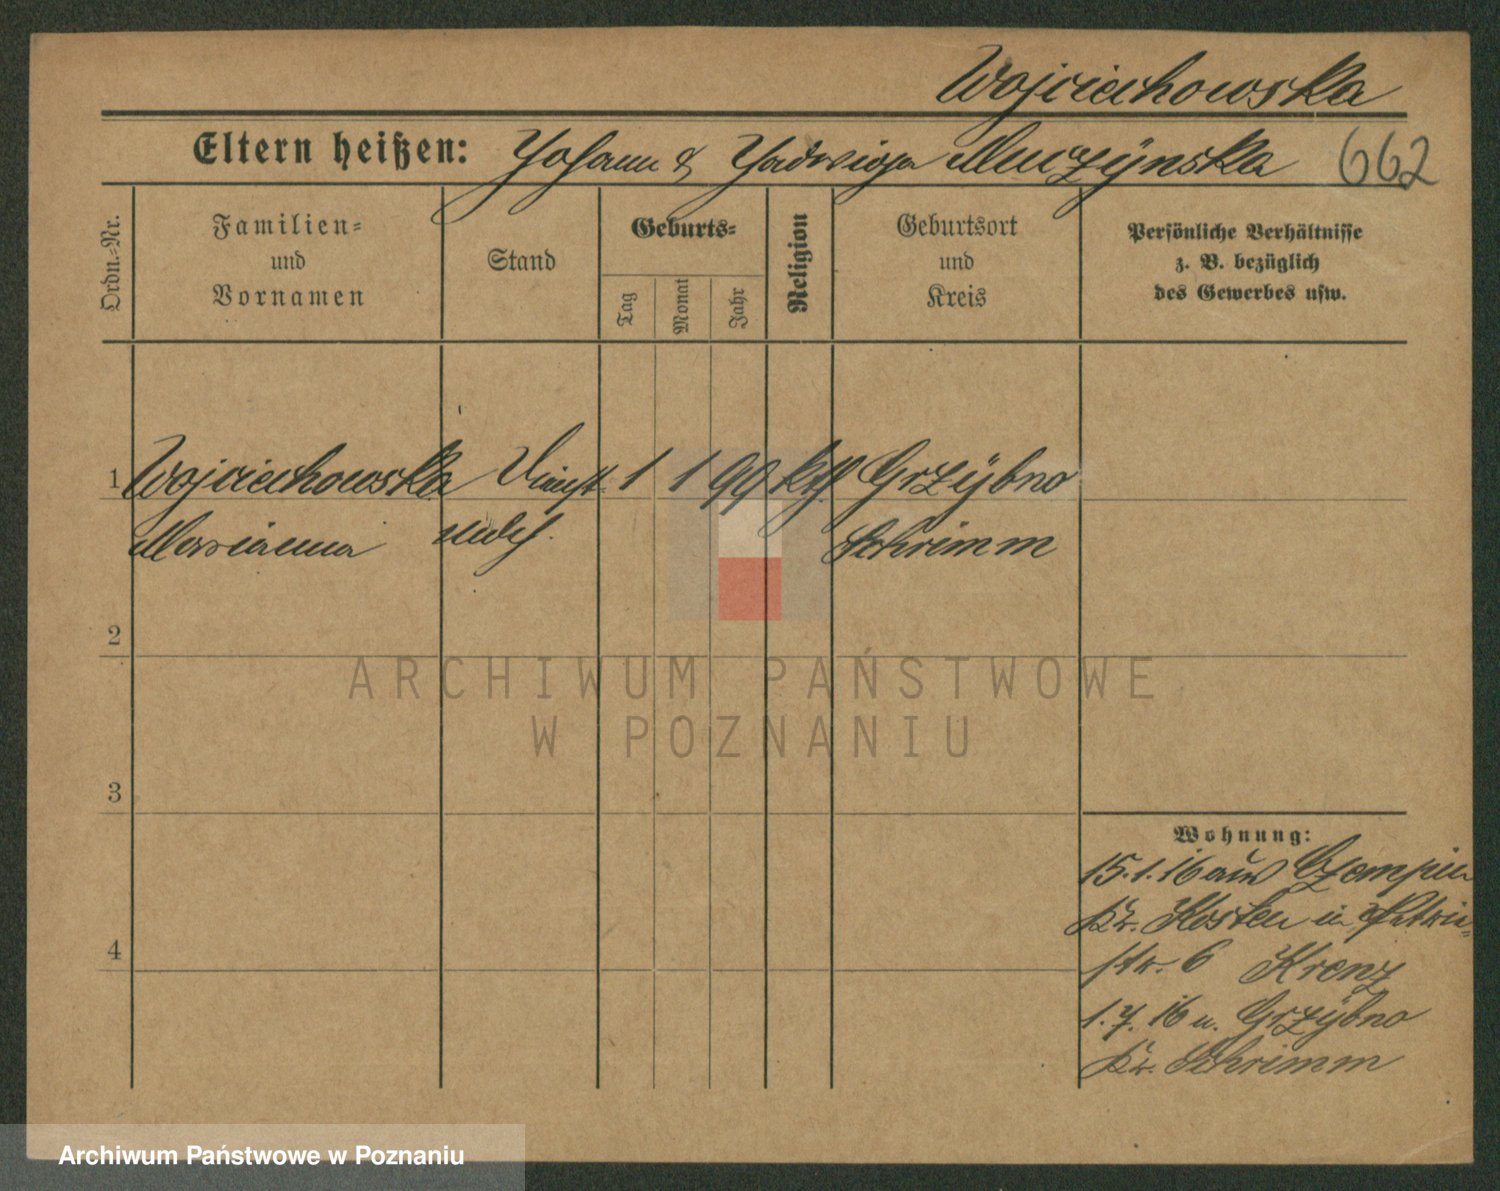 Wojciechowska
Eltern heißen: Johann & Hadwiga Muczÿnska 662
Ordn.-Nr.
Familien-
und
Vornamen
Stand
Geburts-
Tag
Monat
Jahr
Religion
Geburtsort
und
Kreis
Persönliche Verhältnisse
z. B. bezüglich
des Gewerbes usw.
1 Wojciechowska Dienst 1 1 99 kth Grzÿbno
Marianna mdch. Schrimm
2
3
4
Wohnung:
15.1.16 aus Czempin
Kr. Kosten in
str. 6 Krenz
1.7.16 n. Grzÿbno
Kr. Schrimm
ARCHIWUM PAŃSTWOWE
W POZNANIU
Archiwum Państwowe w Poznaniu